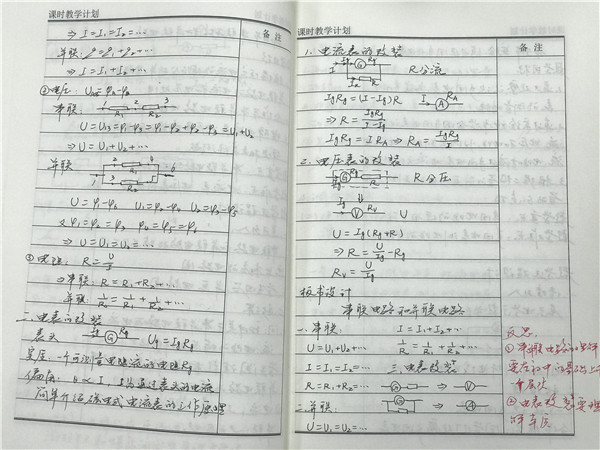 课时教学计划
备注
⇒ I = I₁ = I₂ = ⋯
并联: q = q₁ + q₂ + ⋯
⇒ I = I₁ + I₂ + ⋯
②电压: U₁₂ = φ₁ - φ₂
串联: 1 R₁ 2 R₂ 3
U = U₁₃ = φ₁ - φ₃ = φ₁ - φ₂ + φ₂ - φ₃ = U₁ + U₂
⇒ U = U₁ + U₂ + ⋯
并联 1 2 R₁ 4 3 R₂ 5 6
U = φ₁ - φ₆ U₁ = φ₂ - φ₄ U₂ = φ₃ - φ₅
又 φ₁ = φ₂ = φ₃ φ₄ = φ₅ = φ₆
⇒ U = U₁ = U₂ = ⋯
③电阻: R = U/I
⇒串联: R = R₁ + R₂ + ⋯
并联: 1/R = 1/R₁ + 1/R₂ + ⋯
二、电表的改装
表头 Ig G Rg Ug = IgRg
实质: 一个可测量电流的电阻Rg
偏角: θ ∝ I I为通过表头的电流
简单介绍磁电式电流表的工作原理
课时教学计划
备注
1. 电流表的改装
I Ig G Rg IR R R分流
IgRg = (I - Ig)R I A RA
⇒ R = IgRg/(I - Ig)
IgRg = I RA ⇒ RA = IgRg/I
2. 电压表的改装
G Rg R R分压
Ig V RV U
U = Ig(Rg + R)
⇒ R = U/Ig - Rg
RV = U/Ig
板书设计
串联电路和并联电路
一. 串联: I = I₁ + I₂ + ⋯
U = U₁ + U₂ + ⋯ 1/R = 1/R₁ + 1/R₂ + ⋯
I = I₁ = I₂ = ⋯ 三. 电表改装
R = R₁ + R₂ + ⋯ G → V
二. 并联: G → A
U = U₁ = U₂ = ⋯
反思:
①串并联电路
②电表改装